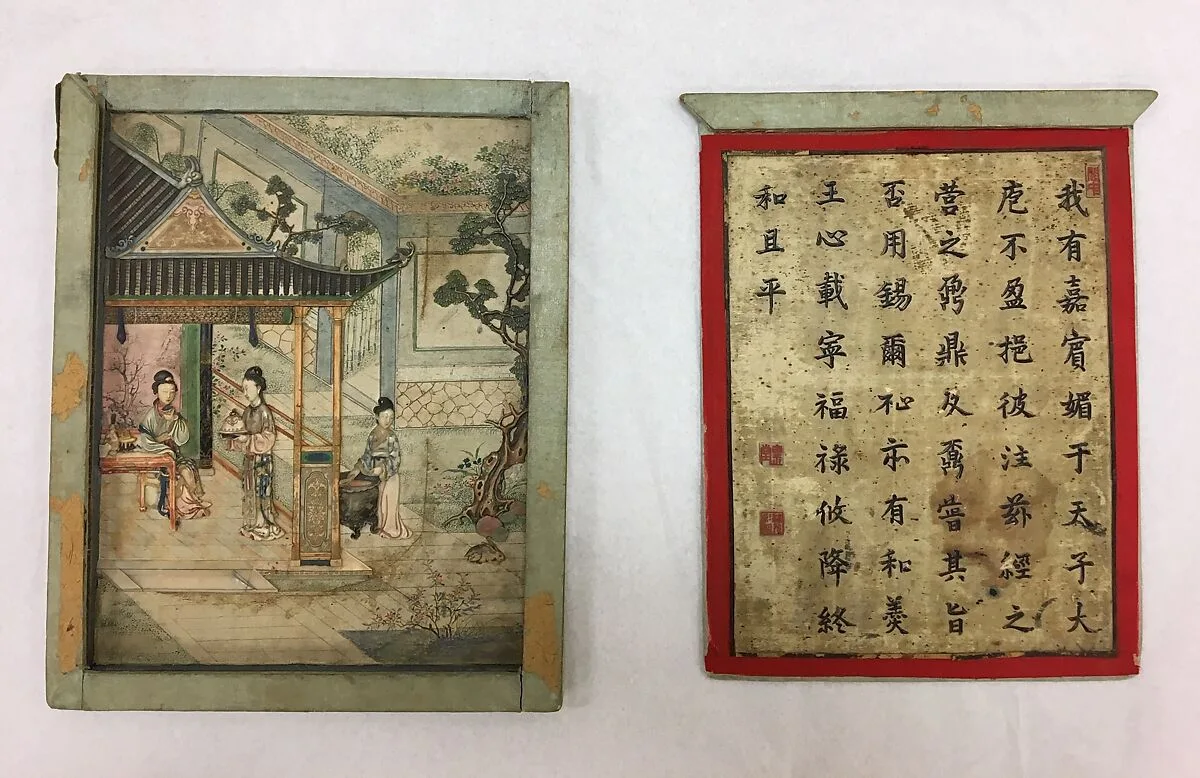 我有嘉賔媚于天子大
庖不盈挹彼注茲經之
营之鼐鼎及鼒嘗其旨
否用錫爾祉亦有和羹
王心載寧福祿攸降終
和且平